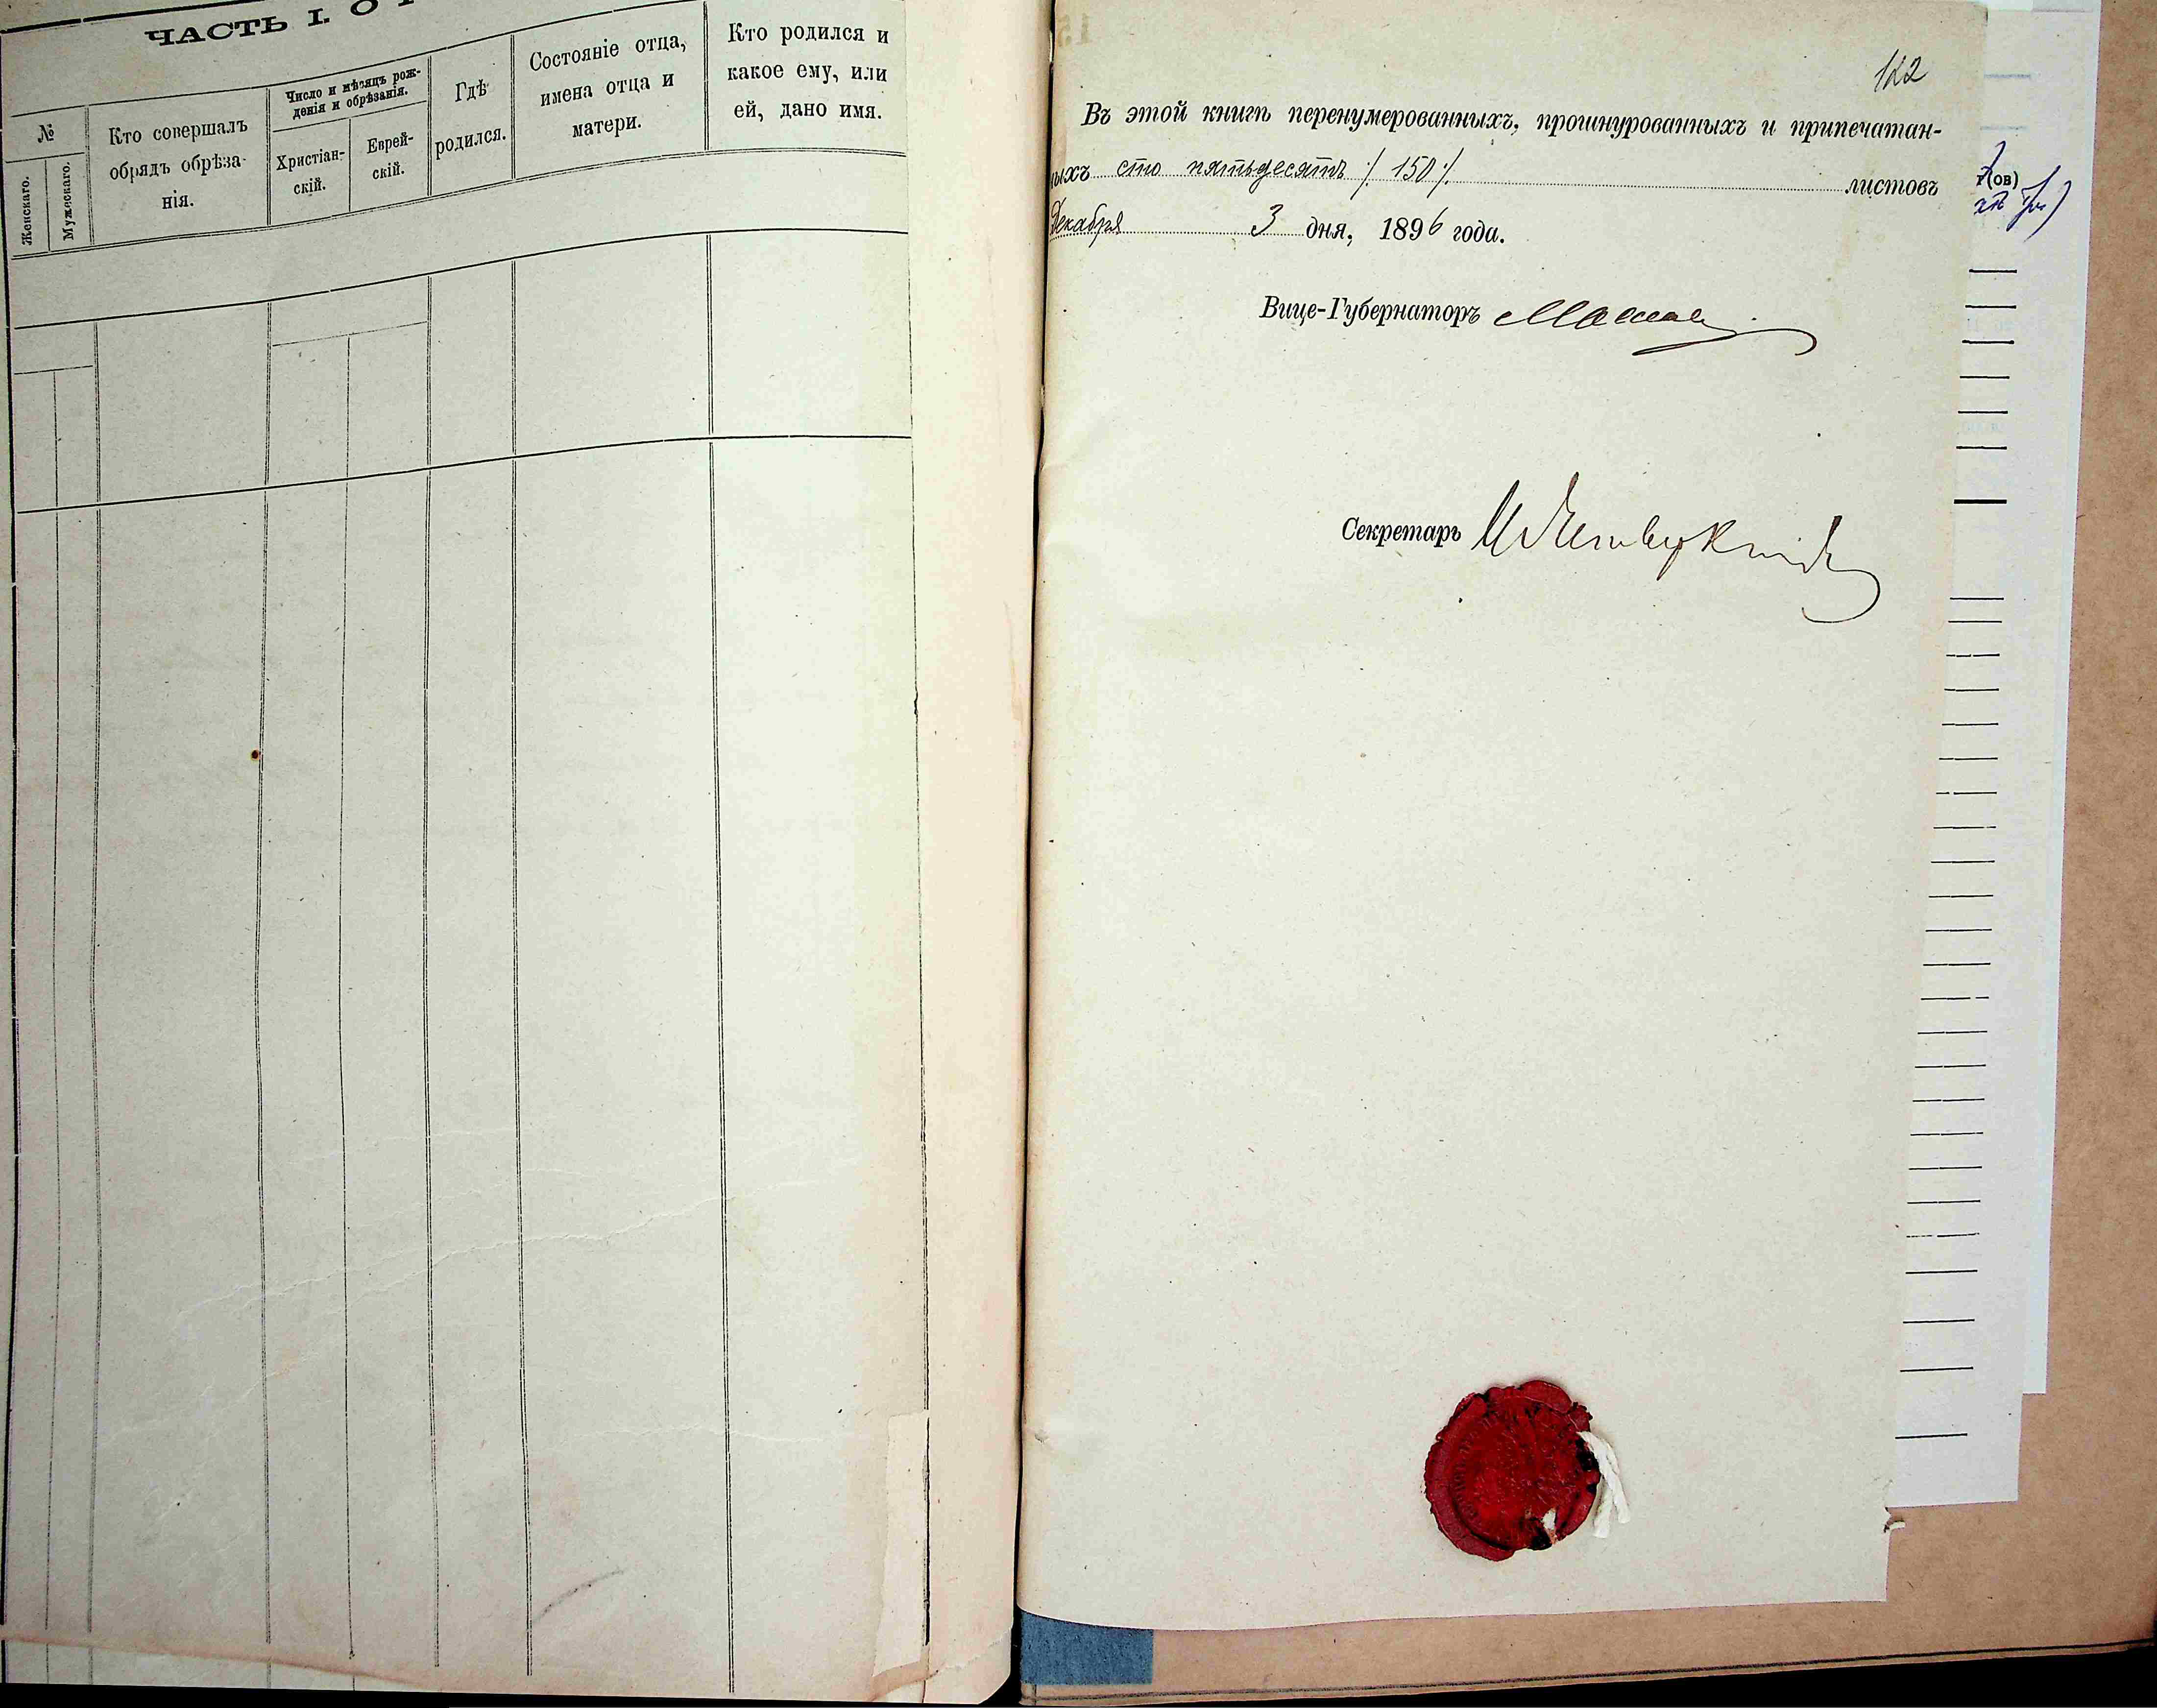 ЧАСТЬ I. О
№
Женскаго.
Мужескаго.
Кто совершалъ
обрядъ обрѣза-
нія.
Число и мѣсяцъ рож-
денія и обрѣзанія.
Христіан-
скій.
Еврей-
скій.
Гдѣ
родился.
Состояніе отца,
имена отца и
матери.
Кто родился и
какое ему, или
ей, дано имя.
122
Въ этой книгѣ перенумерованныхъ, прошнурованныхъ и припечатан-
ныхъ сто пятьдесятъ /. 150 /. листовъ
Декабря 3 дня, 1896 года.
Вице-Губернаторъ
Секретарь
(ов)